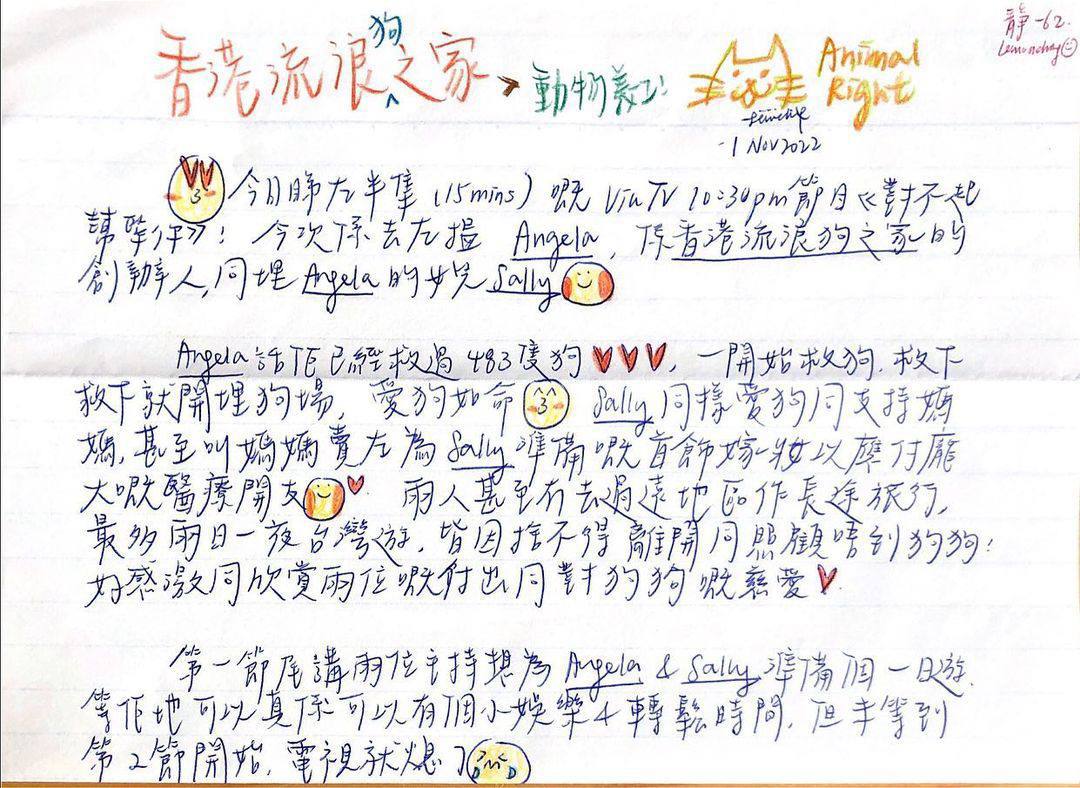 靜-62
Lemonchay
香港流浪狗之家 → 動物義工
Animal
Right
1 Nov 2022
今日睇左半集 (15mins) 嘅 ViuTV 10:30pm 節目《對不起
幫緊你》! 今次係去左搵 Angela, 係香港流浪狗之家的
創辦人, 同埋 Angela 的女兒 Sally
Angela 話佢已經救過 483隻狗, 一開始救狗. 救下
救下就開埋狗場, 愛狗如命 Sally 同樣愛狗同支持媽
媽, 甚至叫媽媽賣左為 Sally 準備嘅首飾嫁妝以應付龐
大嘅醫療開支 兩人甚至冇去過遠地區作長途旅行,
最多兩日一夜台灣遊, 皆因捨不得離開同照顧唔到狗狗!
好感激同欣賞兩位嘅付出同對狗狗嘅慈愛
第一節尾講兩位主持想為 Angela & Sally 準備個一日遊.
等佢地可以真係可以有個小娛樂 & 輕鬆時間, 但未等到
第2節開始, 電視就熄了